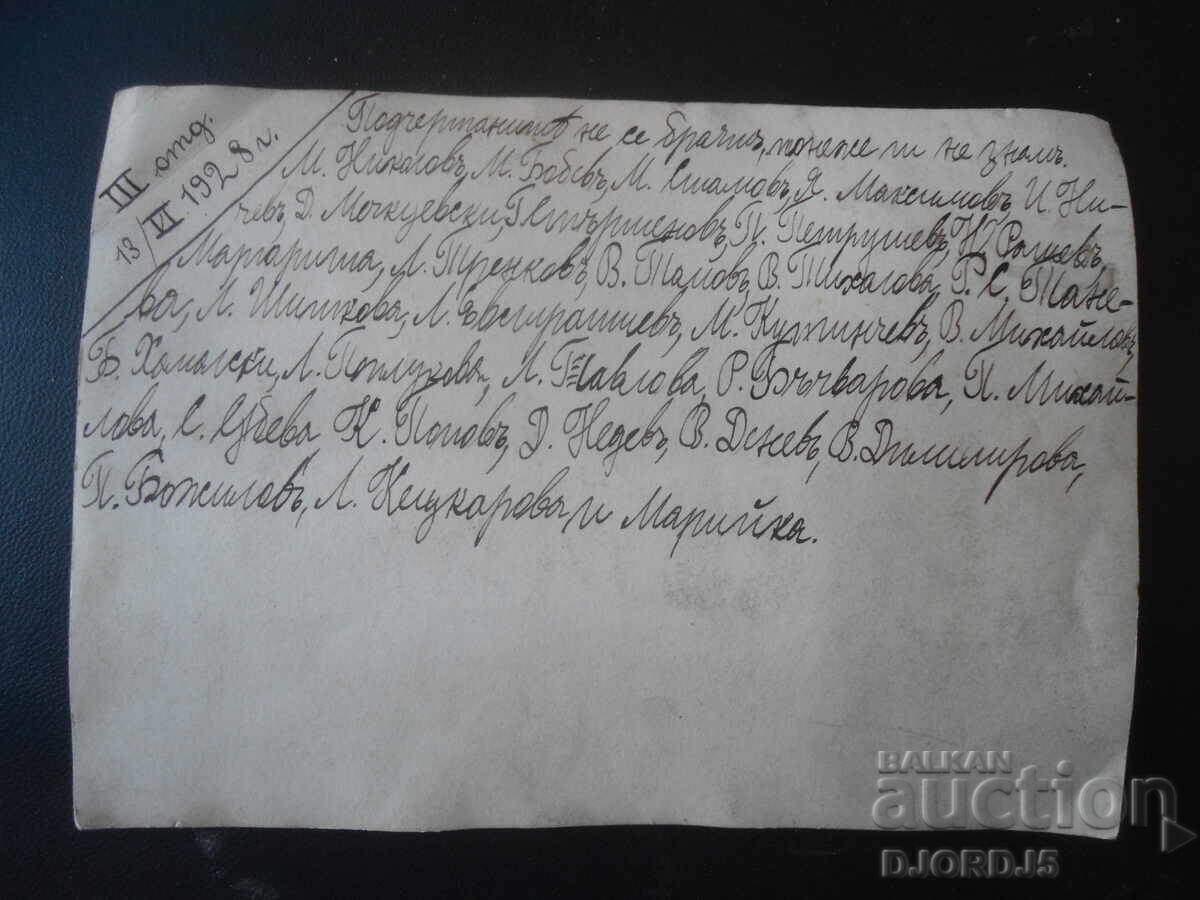 III отд.
13/VI 1928 г.
Подчертанитѣ не се брачи, понеже ги не знамъ.
М. Николовъ, М. Бобевъ, М. Стамовъ, Я. Максимовъ, И. Ни-
чевъ, Д. Мочкуевски, П. Петрушевъ, Н.
Маргарита, Л. Тренковъ, В. Тамовъ, В. Тихалова, Р. С. Тане-
ва, Л. Шишкова, Л. Евстратиевъ, М. Кутинчевъ, В. Михайловъ,
Б. Хамалски, Л. Павлова, Р. Бъчварова, П. Михай-
лова, С. К. Поповъ, Д. Недевъ, В. Деневъ, В. Димитрова,
П. Божиловъ, Л. и Марийка.
BALKAN
auction
DJORDJ5